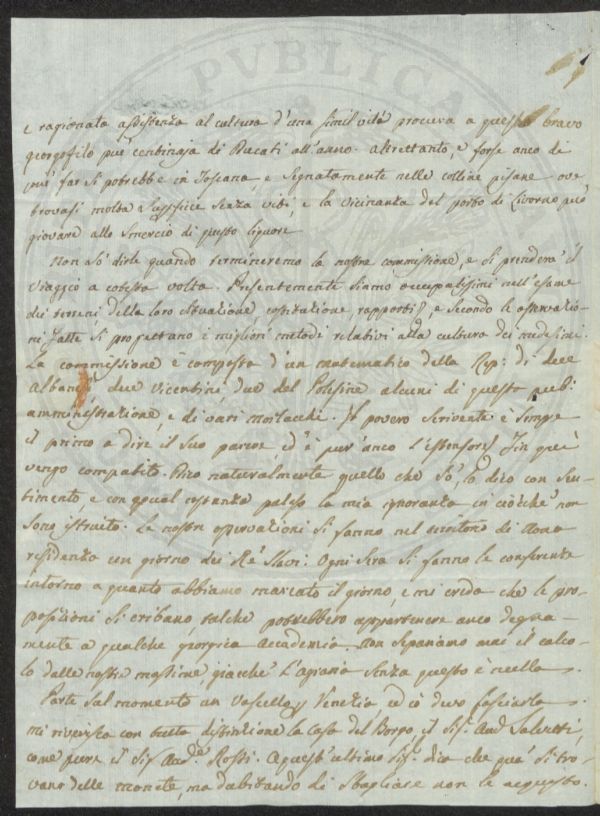 PUBLICA
e ragionata assistenza al cultura d'una simil vite procura a questo bravo
georgofilo più centinaja di Ducati all'anno. altrettanto, e forse anco di
più far si potrebbe in Toscana, e segnatamente nelle colline pisane ove
trovasi molta superficie senza viti, e la vicinanza del porto di Livorno può
giovare allo smercio di questo liquore.
Non sò dirle quando termineremo la nostra commissione, e si prenderà il
viaggio a cotesta volta. Presentemente siamo occupatissimi nell'esame
dei terreni della loro situazione, costituzione rapporti, e secondo le osservazio-
ni fatte si progettano i migliori metodi relativi alla cultura dei medesimi.
La commissione è composta d'un matematico della Rep: di dece
Albanesi due vicentini, due del Polesine alcuni di questa pub:
amministrazione, e di vari morlacchi. Il povero scrivente è sempre
il primo a dire il suo parere, ed è per anco l'estensore. Fin qui
vengo compatito. Dico naturalmente quello che sò, lo dico con sen-
timento, e con egual costanza paleso la mia ignoranza in ciò che non
sono istruito. Le nostre osservazioni si fanno nel territorio di
residenza un giorno dei Rè Slavi. Ogni sera si fanno le conferenze
intorno a quanto abbiamo marcato il giorno e mi creda che le pro-
posizioni si cribano, talche potrebbero appartenere anco degna-
mente a qualche georgica accademia. non separiamo mai il calco-
lo dalle nostre massime, giacchè l'agraria senza questo è nulla.
Parte sul momento un vascello p Venezia ed io devo lasciarla.
mi riverisca con tutta distinzione la Casa del Borgo, il Sig. Aud Salvetti,
come pure il Sig Aud.e Rossi. A quest'ultimo Sig. dica che quà si tro-
vano delle monete, ma dubitando di sbagliare non le acquisto.